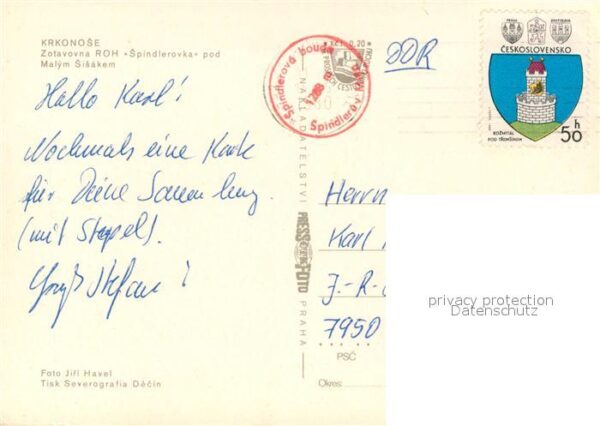 KRKONOŠE
Zotavovna ROH »Špindlerovka« pod
Malým Šišákem
Hallo Karl!
Nochmals eine Karte
für Deine Sammlung.
(mit Stempel).
Gruß Stefan!
Foto Jiří Havel
Tisk Severografia Děčín
Špindlerova bouda
1208 m
Špindlerův Mlýn
Kčs 0,20
NAKLADATELSTVÍ
PRESSFOTO
PRAHA
DDR
ČESKOSLOVENSKO
ROŽMITÁL
POD TŘEMŠÍNEM
50 h
Herrn
Karl
J.-R.-
7950
PSČ
Okres:
privacy protection
Datenschutz